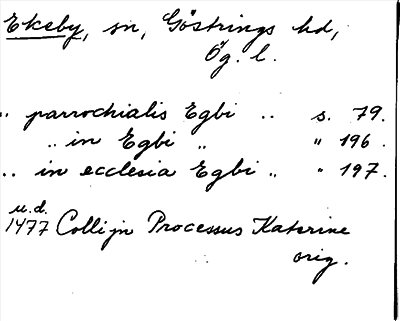 Ekeby, sn, Göstrings hd,
Ög. l.
.. parrochialis Egbi .. s. 79.
.. in Egbi .. " 196.
.. in ecclesia Egbi .. " 197.
u.d.
1477 Collijn Processus Katerine
orig.